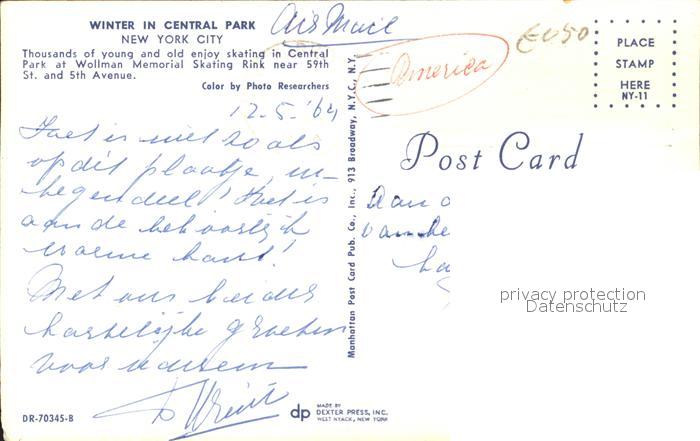 WINTER IN CENTRAL PARK
NEW YORK CITY
Thousands of young and old enjoy skating in Central
Park at Wollman Memorial Skating Rink near 59th
St. and 5th Avenue.
Color by Photo Researchers
Air Mail
America
€050
PLACE
STAMP
HERE
NY-11
12.5.'64
Het is niet zo als
op dit plaatje, in-
tegendeel! Het is
aan de behoorlijk
warme kant!
Met ons beider
hartelijke groeten
voor u
DR-70345-B
Manhattan Post Card Pub. Co., Inc., 913 Broadway, N.Y.C., N.Y.
Post Card
privacy protection
Datenschutz
dp
MADE BY
DEXTER PRESS, INC.
WEST NYACK, NEW YORK